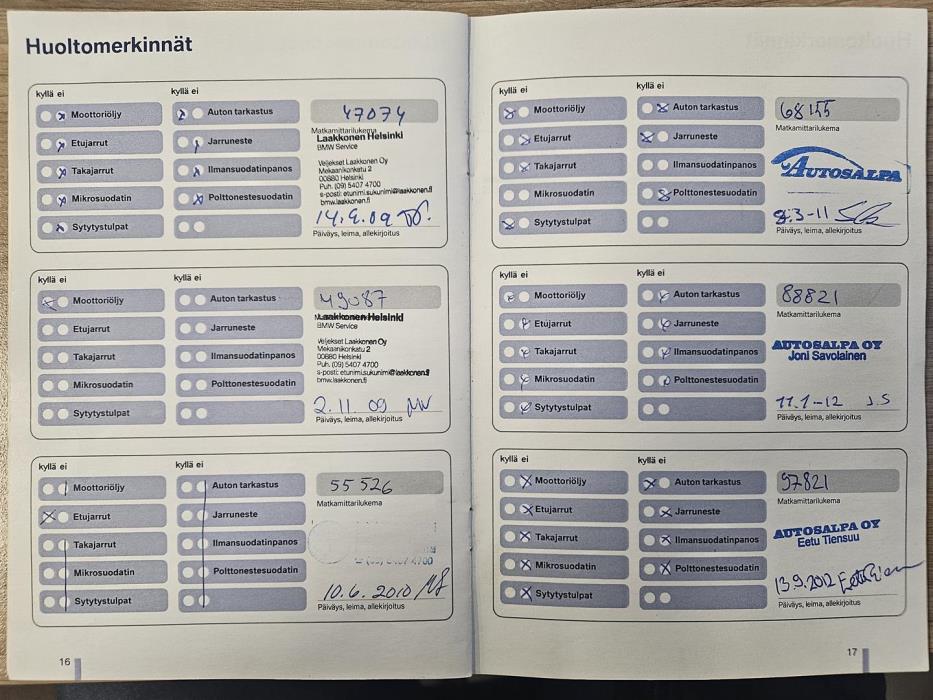 Huoltomerkinnät
kyllä ei
kyllä ei
Moottoriöljy
Auton tarkastus
47074
Matkamittarilukema
Etujarrut
Jarruneste
Laakkonen Helsinki
BMW Service
Takajarrut
Ilmansuodatinpanos
Veljekset Laakkonen Oy
Mekaanikonkatu 2
00880 Helsinki
Puh. (09) 5407 4700
Mikrosuodatin
Polttonestesuodatin
s-posti: etunimi.sukunimi@laakkonen.fi
bmw.laakkonen.fi
Sytytystulpat
Päiväys, leima, allekirjoitus
kyllä ei
kyllä ei
Moottoriöljy
Auton tarkastus
49087
Laakkonen Helsinki
BMW Service
Etujarrut
Jarruneste
Veljekset Laakkonen Oy
Mekaanikonkatu 2
00880 Helsinki
Puh. (09) 5407 4700
Takajarrut
Ilmansuodatinpanos
s-posti: etunimi.sukunimi@laakkonen.fi
bmw.laakkonen.fi
Mikrosuodatin
Polttonestesuodatin
Sytytystulpat
2.11.09
Päiväys, leima, allekirjoitus
kyllä ei
kyllä ei
Moottoriöljy
Auton tarkastus
55526
Matkamittarilukema
Etujarrut
Jarruneste
Takajarrut
Ilmansuodatinpanos
Mikrosuodatin
Polttonestesuodatin
Sytytystulpat
10.6.2010
Päiväys, leima, allekirjoitus
16
kyllä ei
kyllä ei
Moottoriöljy
Auton tarkastus
68155
Matkamittarilukema
Etujarrut
Jarruneste
Takajarrut
Ilmansuodatinpanos
AUTOSALPA
Mikrosuodatin
Polttonestesuodatin
8.3-11
Sytytystulpat
Päiväys, leima, allekirjoitus
kyllä ei
kyllä ei
Moottoriöljy
Auton tarkastus
88821
Matkamittarilukema
Etujarrut
Jarruneste
AUTOSALPA OY
Joni Savolainen
Takajarrut
Ilmansuodatinpanos
Mikrosuodatin
Polttonestesuodatin
11.1-12 J.S
Sytytystulpat
Päiväys, leima, allekirjoitus
kyllä ei
kyllä ei
Moottoriöljy
Auton tarkastus
97821
Matkamittarilukema
Etujarrut
Jarruneste
AUTOSALPA OY
Eetu Tiensuu
Takajarrut
Ilmansuodatinpanos
Mikrosuodatin
Polttonestesuodatin
13.9.2012
Sytytystulpat
Päiväys, leima, allekirjoitus
17